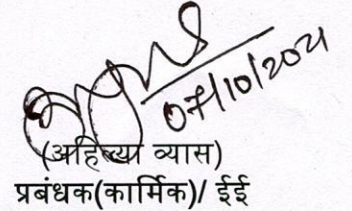 07/10/2021
(अहिल्या व्यास)
प्रबंधक(कार्मिक)/ ईई